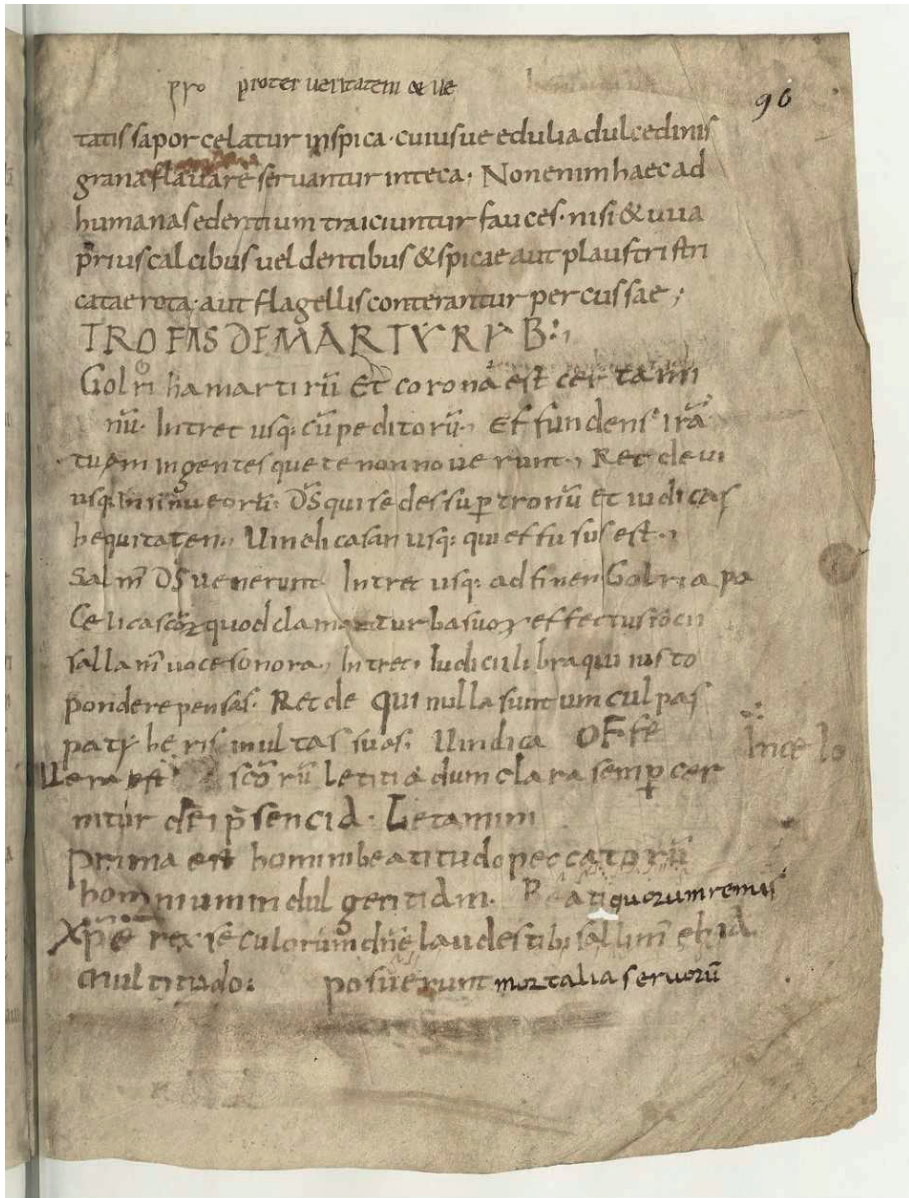 pro proter ueritatem & ue
96
tatis sapor celatur in spica · cuius ue edulia dulcedinis
grana flauare seruantur in teca · Non enim haec ad
humana sedentium traiciuntur fauces · nisi & uua
prius calcibus uel dentibus & spicae aut plaustri stri
catae rota · aut flagellis conterantur percussae ;
TROFAS DE MARTYRY B :,
Golri ha martirū Et corona est certami
nū · Intret usq; cūpeditorū · Effundens irā
tuam in gentes que te non nouerunt · Ret de ui
usq; in sinu eorū · D̄S qui sedes sup tronū Et iudicas
hequitaten · Uindica san usq; qui effusus est ·
Sal m̄ D̄S uenerunt · Intret usq; ad finen Golria pa
Celicas quod clamant turba suoꝝ effectus
salla m̄ uoce sonora · Intret · Iudicii libra qui iusto
pondere pensas · Ret de qui nulla sunt um culpas
multas suas · Uindica OFfe
In celo
Uera est scōrū letitia dum clara semp cer
nitur dei p̄sencia · Letamini
prima est homini beatitudo peccatorū
hominium indulgentiam · Beati quorum remis
Xpē rex seculorum dn̄e laudes tibi sallim̄
multitudo : posuerunt mortalia seruorū